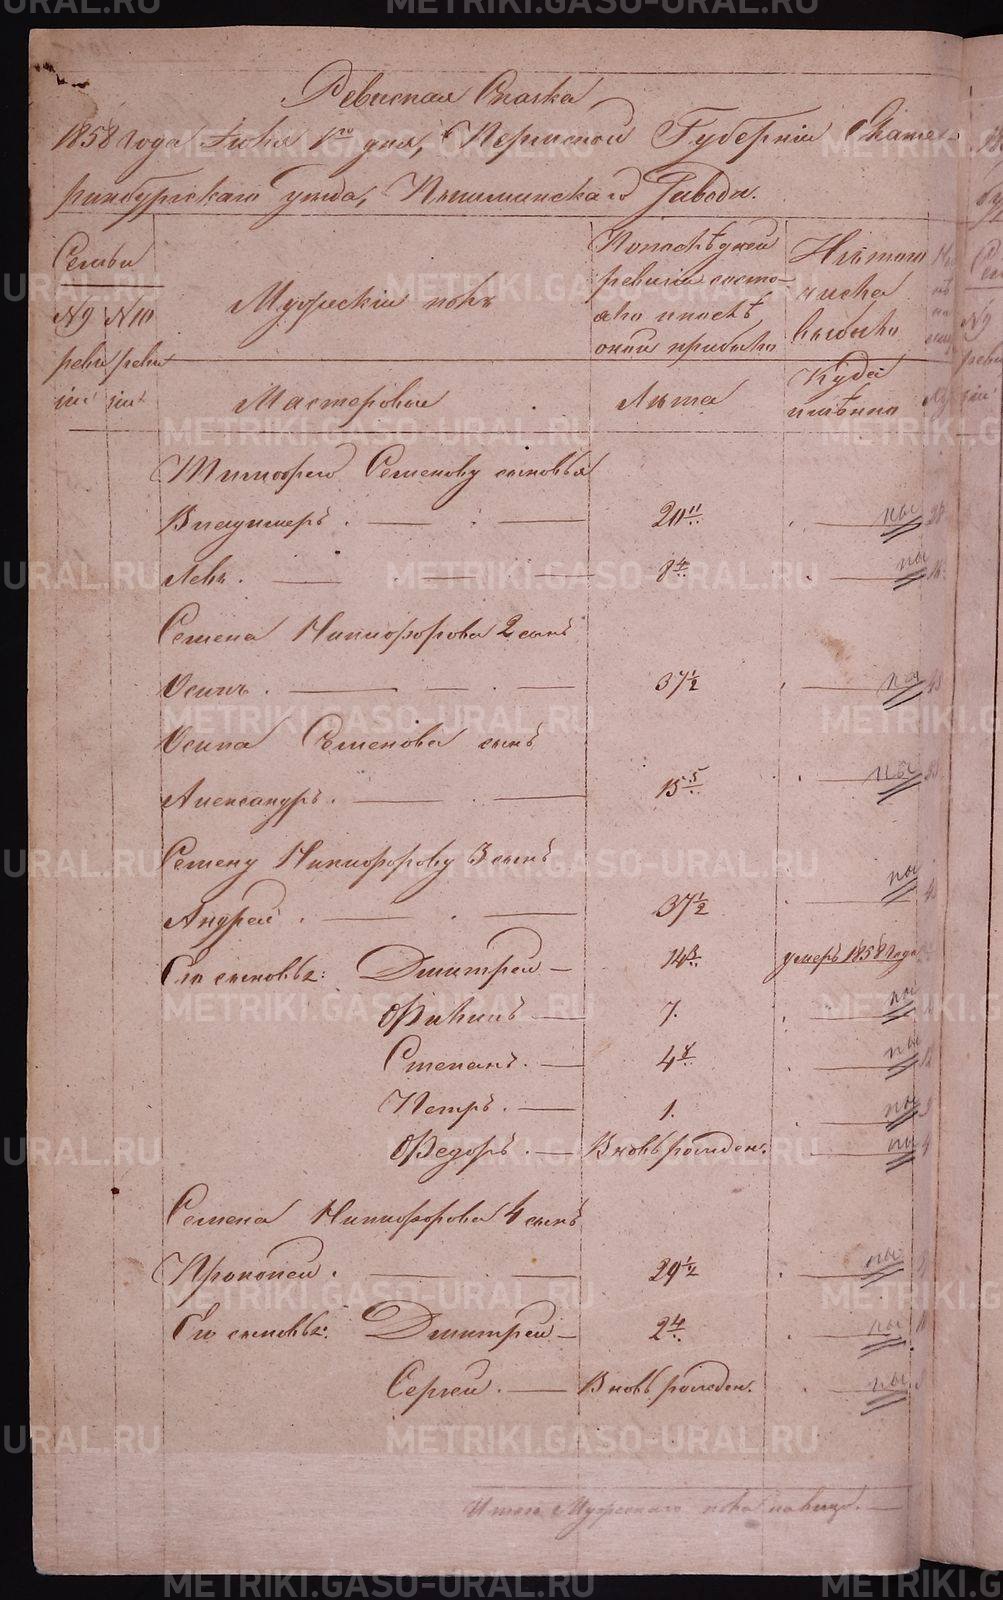 Ревиская Сказка
1858 года Июня 1го дня, Пермской Губерніи Екате-
ринбургскаго уезда, Пышминскаго Завода.
Семьи
№ 9 № 10
реви реви
іи іи
Мужескій полъ
По последней
ревизіи состо-
яло и после
оной прибыло
Изъ того
числа
выбыло
Мастеровые
Лета
Куда
именно
Тимофею Семенову сыновья
Владимеръ. 20 11
Левъ. 8 4
Семена Никифорова 2 сынъ
Осипъ. 37 1/2
Осипа Семенова сынъ
Александръ. 15 5
Семену Никифорову 3 сынъ
Андрей. 37 1/2
Его сыновья: Дмитрей 14 умеръ 1858 года
Филипъ 7.
Степанъ. 4
Петръ. 1.
Федоръ. Вновь рожден.
Семена Никифорова 4 сынъ
Прокопей. 29 1/2
Его сыновья: Дмитрей 2 4
Сергей. Вновь рожден.
Итого Мужескаго пола на лицо.
METRIKI.GASO-URAL.RU